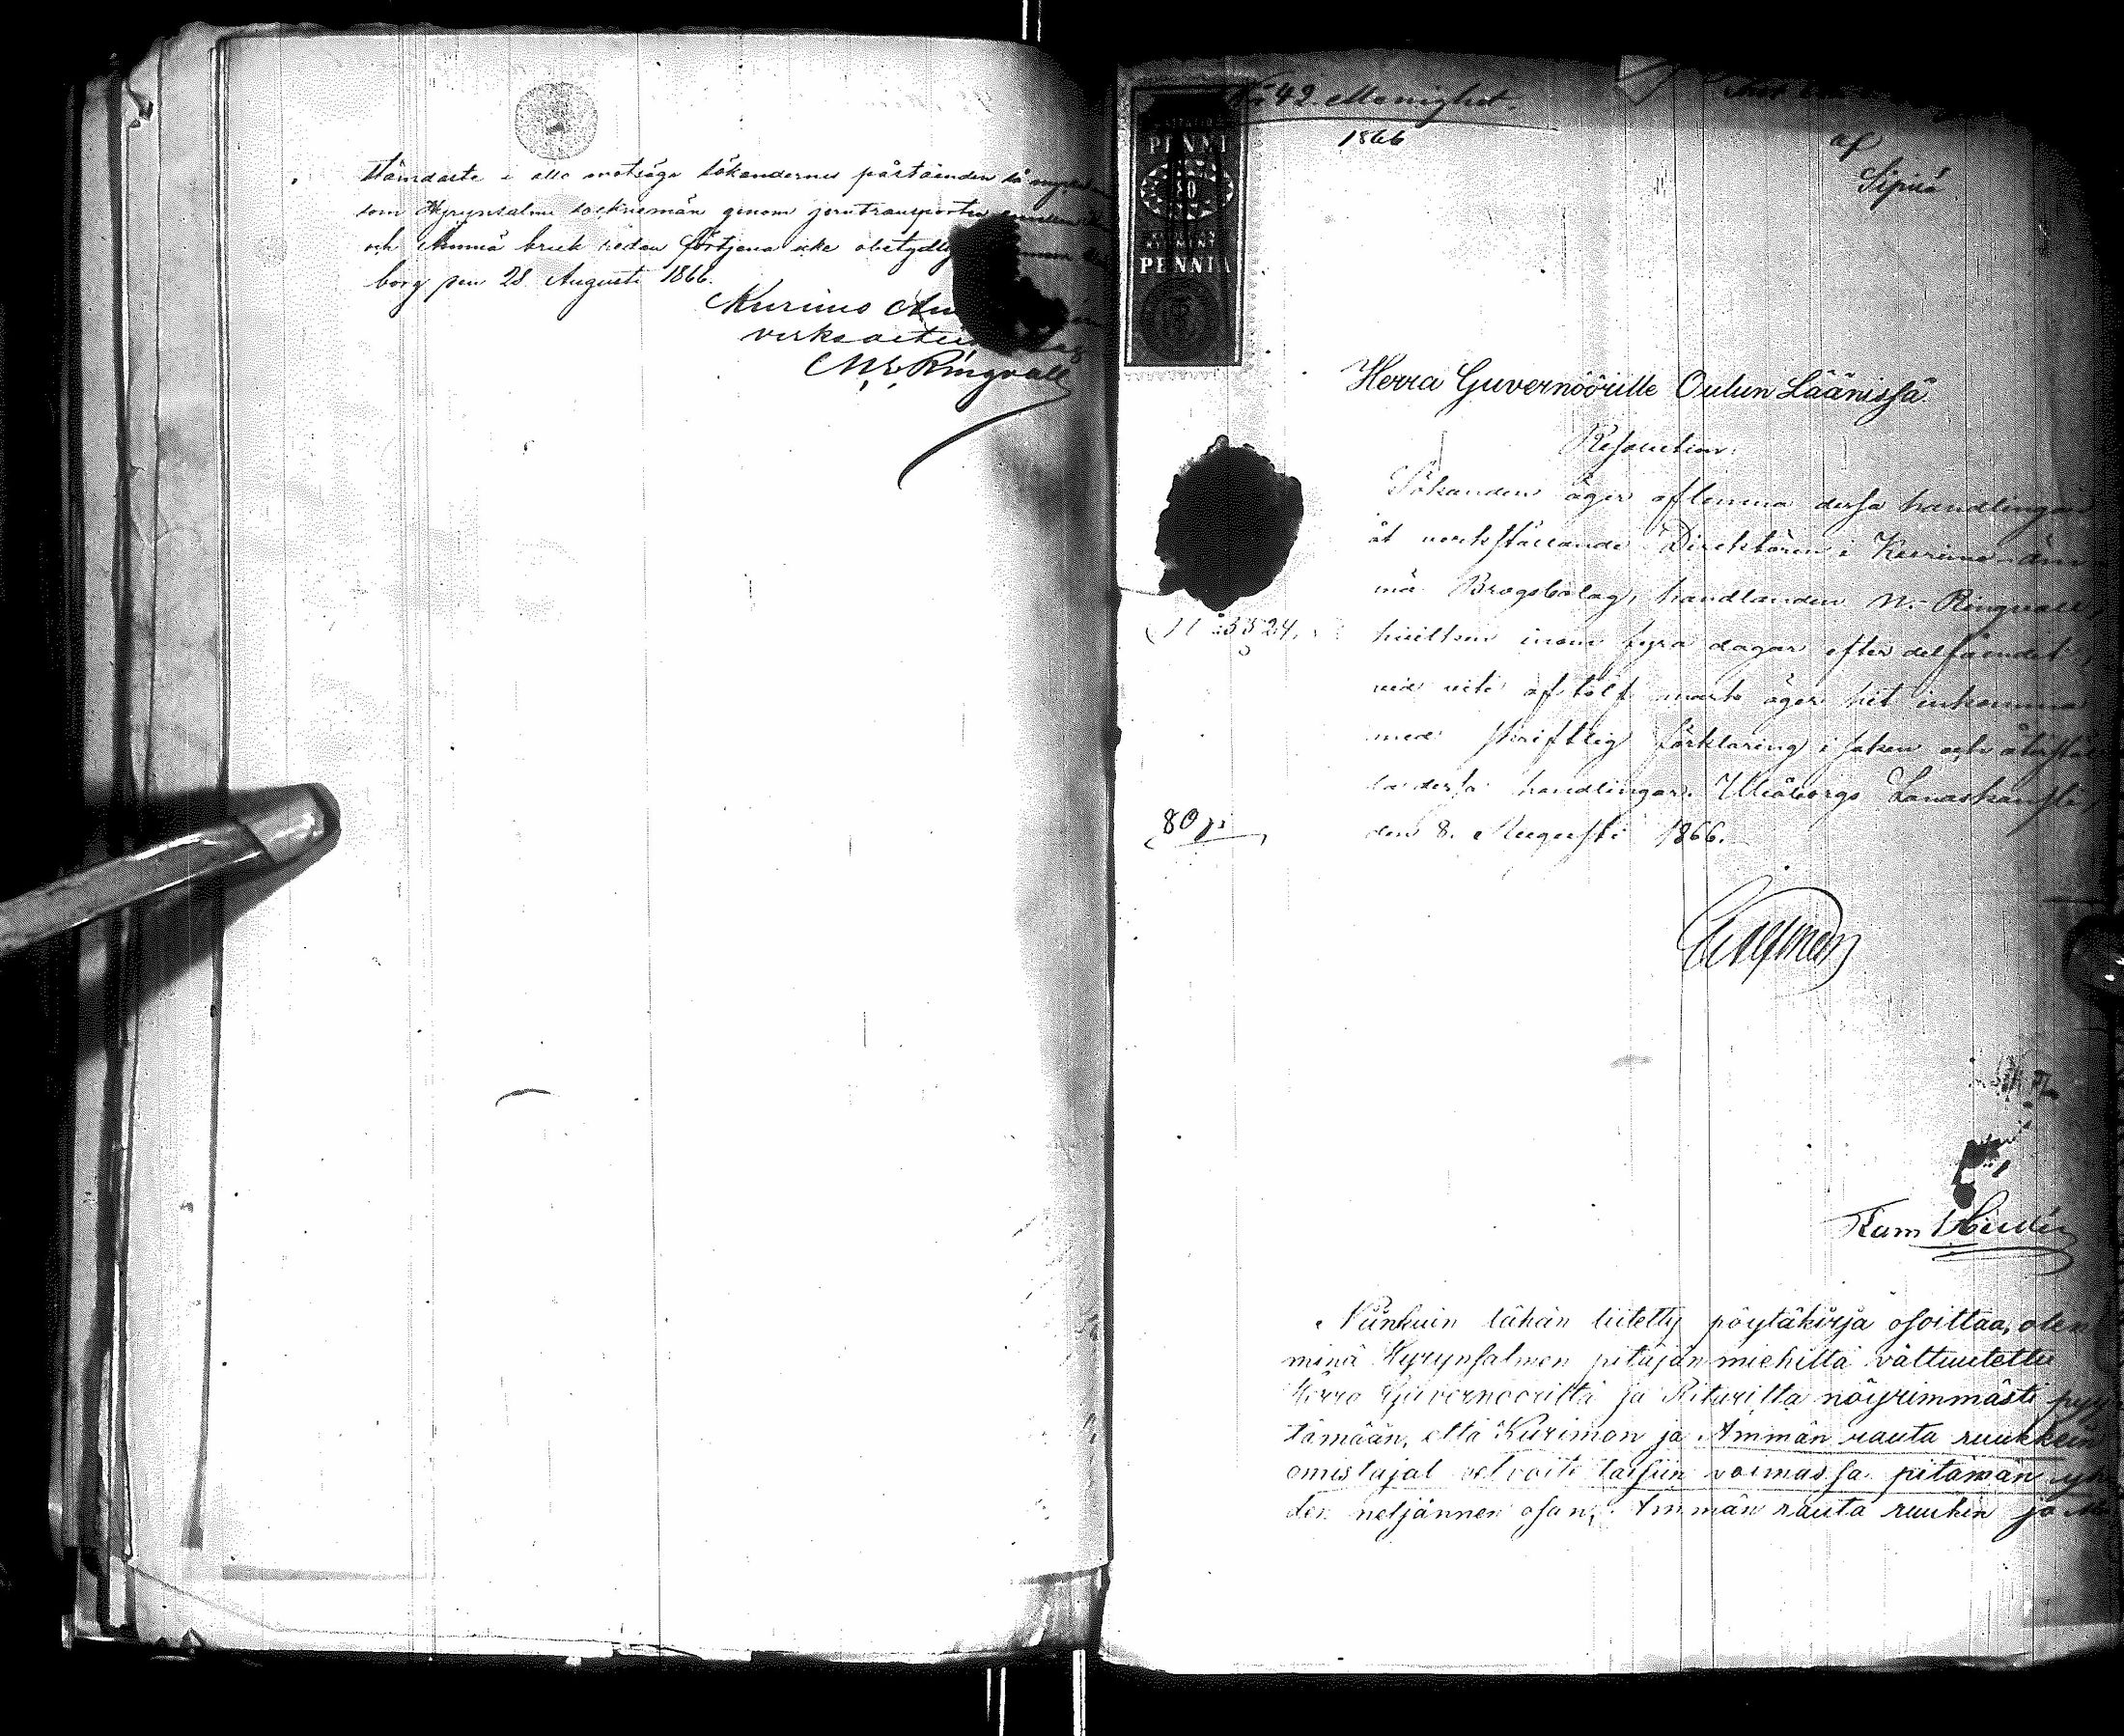 stämdaste i allo motsäga sökandernes påståenden så mycket
som Hyrynsalmi socknemän genom jerntransporter
och Ämmä bruk redan förtjena icke obetydligt
borg den 28 Augusti 1866.
Kurimo
verks actie
N. Ringvall
No 42. Menighet.
1866
af
Sipiä
PENNI
80
PENNIÄ
Herra Guvernöörille Oulun Läänissä.
Resolution:
Sökanden äger aflemna dessa handlingar
åt verkställande Direktören i Kurimo-Äm-
mä Brugsbolag, handlanden N. Ringvall,
N: 3524.
hvilken inom fyra dagar efter delfåendet,
vid vite af tolf mark äger hit inkomma
med skriftlig förklaring i saken och återstäl-
la dessa handlingar. Uleåborgs Landskansli,
80 p:
den 8. Augusti 1866.
Niinkuin tähän liitetty pöytäkirja osoittaa, olen
minä Hyrynsalmen pitäjän miehiltä valtuutettu
Herra Guvernööriltä ja Ritarilta nöyrimmästi pyy-
tämään, että Kurimon ja Ämmän rauta ruukkein
omistajat velvoitettaisiin voimassa pitämän yh-
den neljännen osan, Ämmän rauta ruukin ja